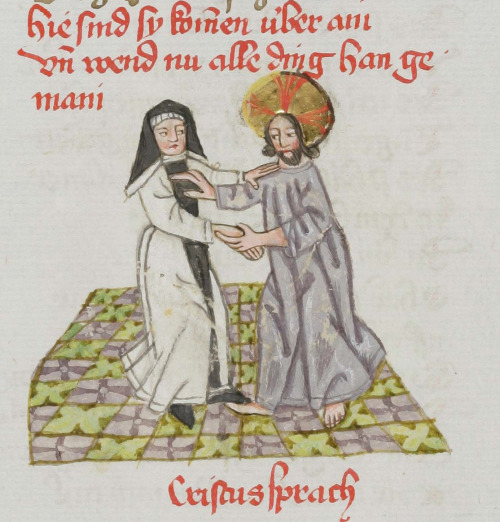 hie sind sy komēn über ain
vn̄ wend nu alle ding han ge
mani
Cristus sprach